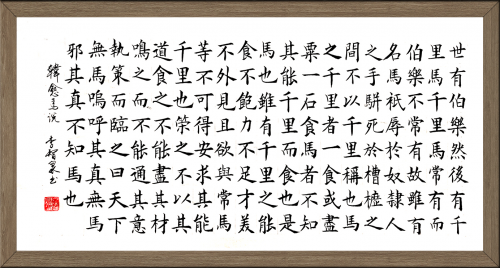 世有伯樂然後有千
里馬千里馬常有而
伯樂不常有故雖有
名馬祇辱於奴隸人
之手駢死於槽櫪之
間不以千里稱也馬
之千里者一食或盡
粟一石食馬者不知
其能千里而食也是
馬也雖有千里之能
食不飽力不足才美
不外見且欲與常馬
等不可得安求其能
千里也策之不以其
道食之不能盡其材
鳴之而不能通其意
執策而臨之曰天下
無馬嗚呼其真無馬
邪其真不知馬也
韓愈馬說